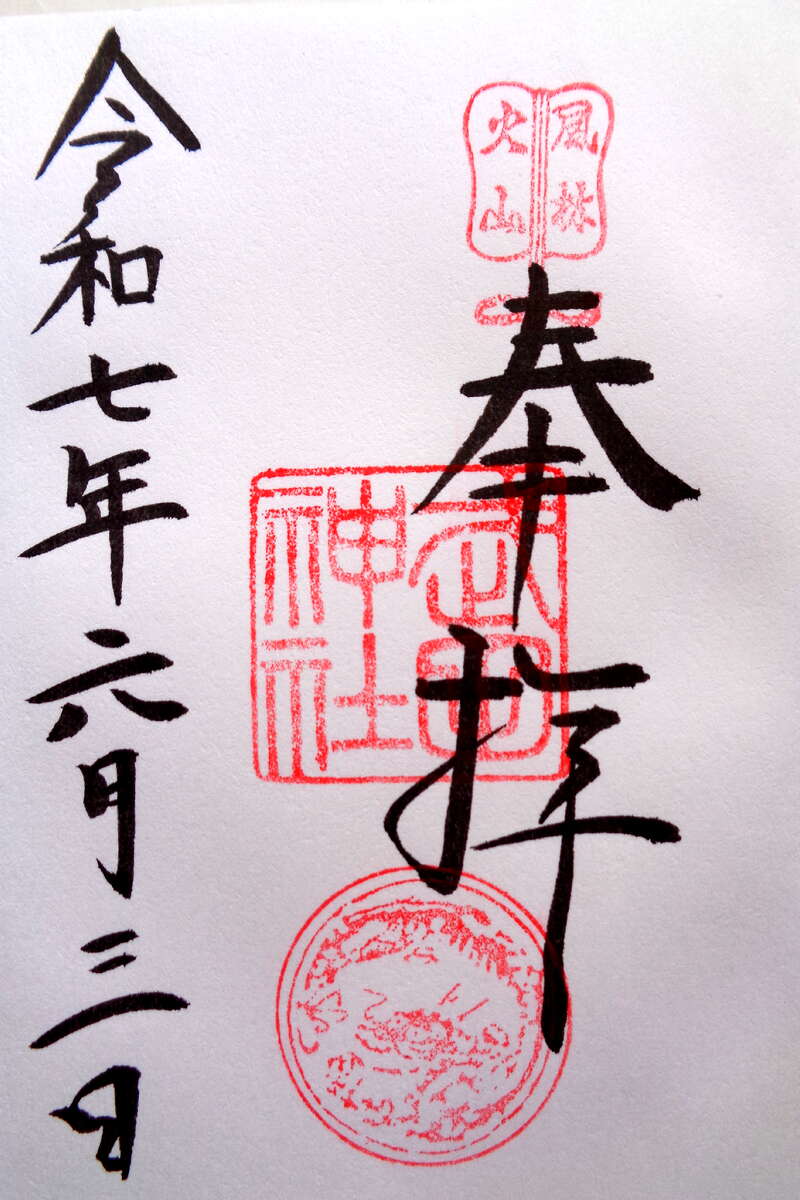 風林
火山
奉拝
武田
神社
令和七年六月三日